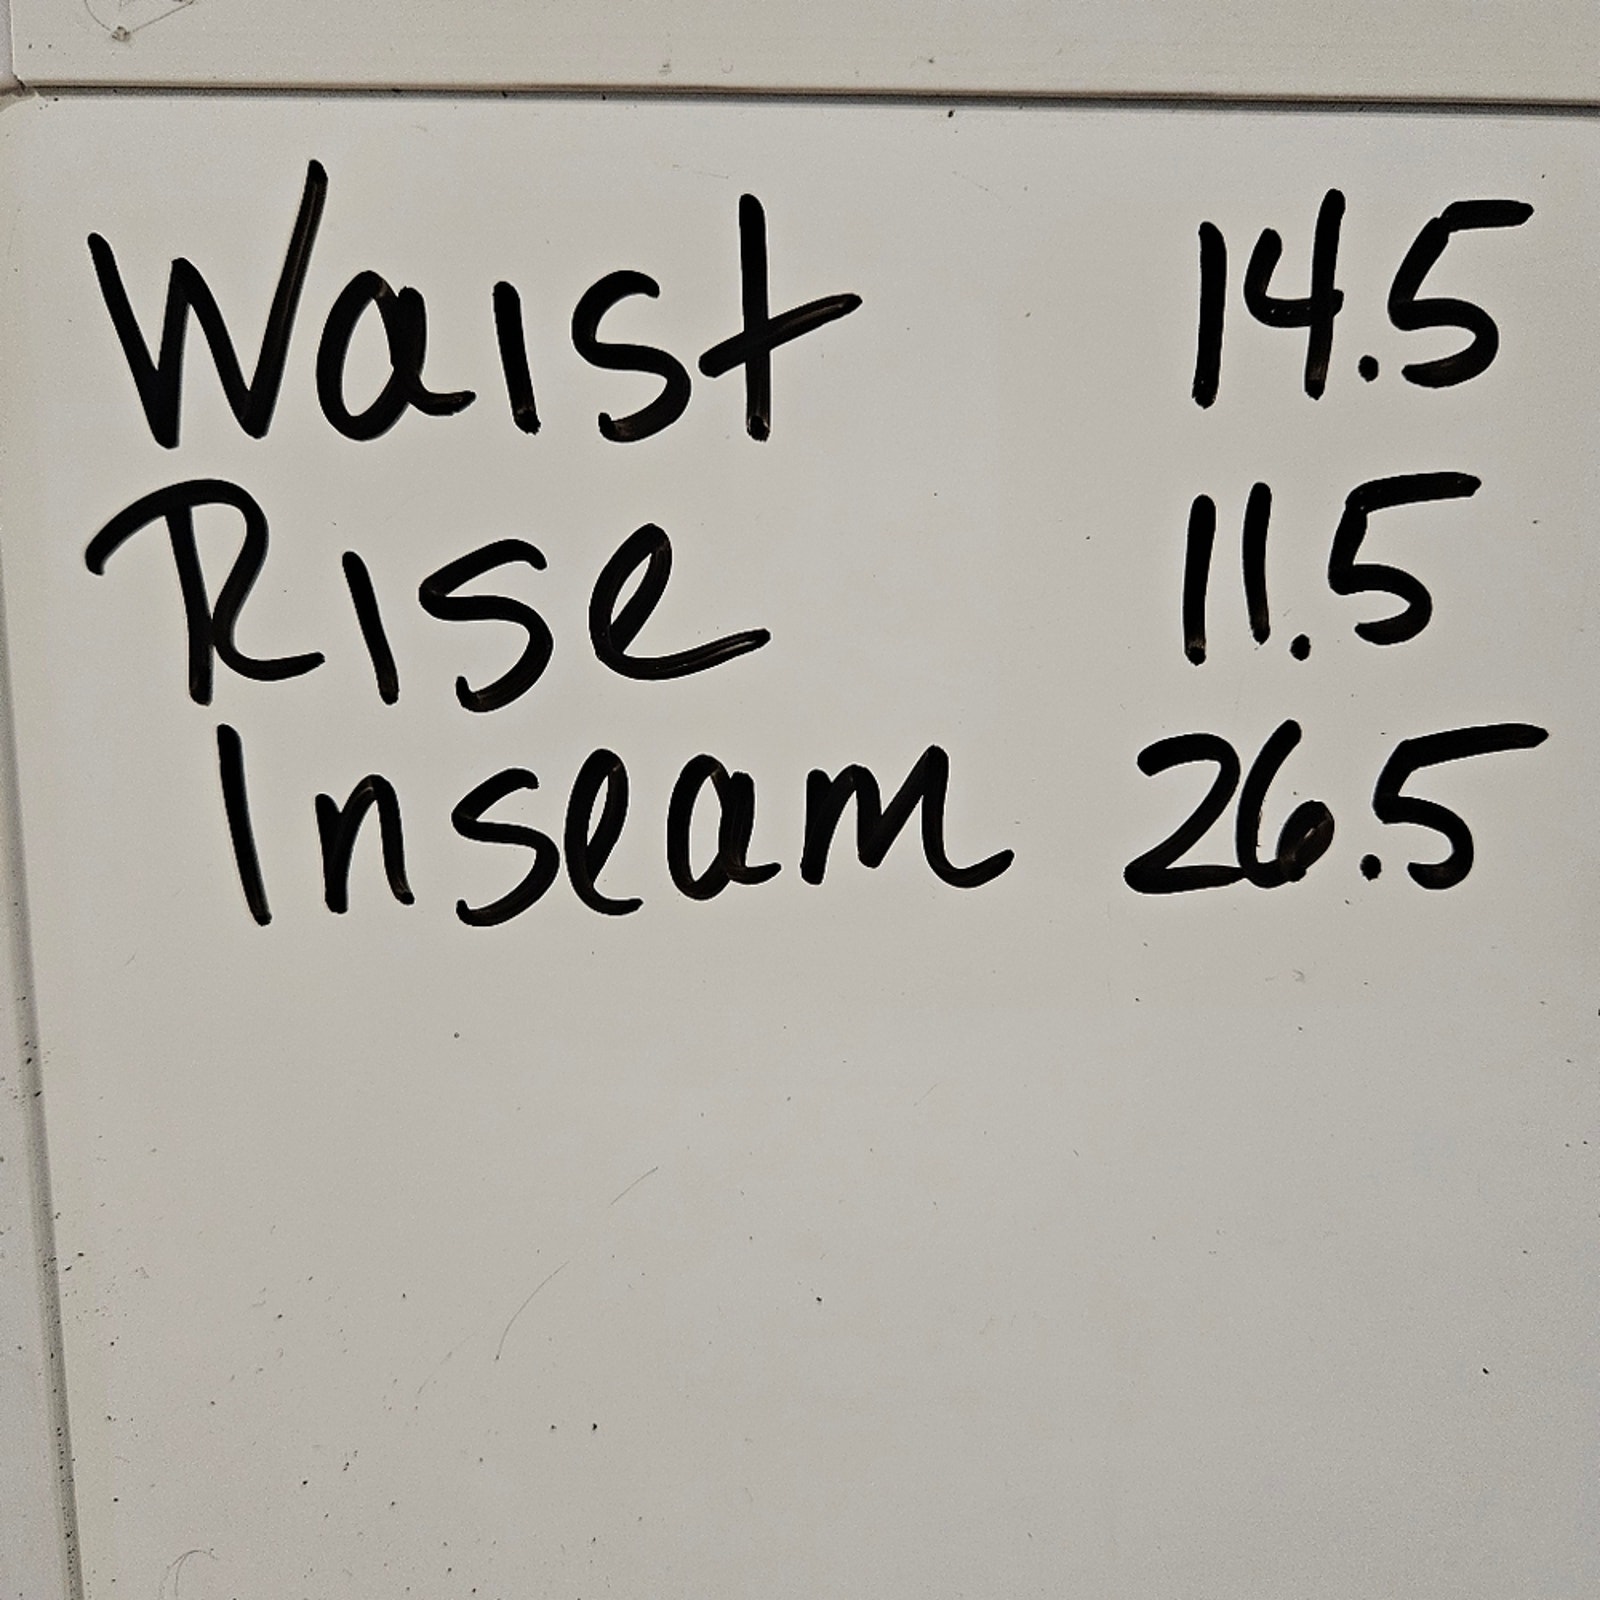 Waist 14.5
Rise 11.5
Inseam 26.5